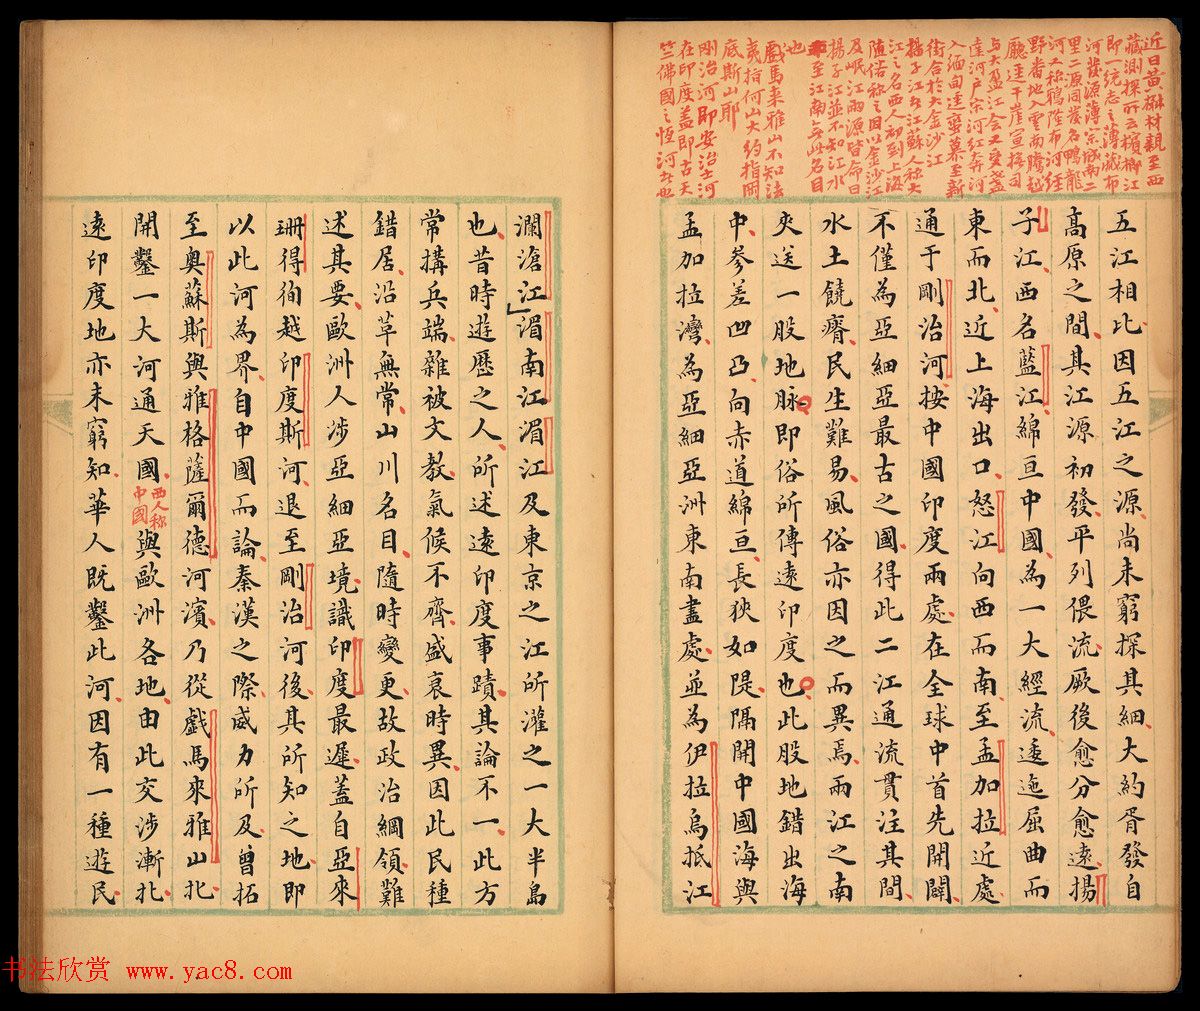 近日黄楙材親至西
藏測探所云檳榔江
即一統志之薄藏布
河發源薄宗城南二
里二源同發名鴨龍
河又称鴉隆布河经
野番地入雲南騰越
廳逕干崖宣撫司
与大盈江会又受盞
達河户宋河红奔河
入缅甸逕蛮慕至新
街合於大金沙江
揚子江者江蘇人称大
江之名西人初到上海
随俗称之因以金沙江
及岷江兩源皆命曰
揚子江並不知江水
至江南無此名目
也
戲馬来雅山不知法
夷指何山大约指岡
底斯山耶
剛治河即安治士河
在印度盖即古天
竺佛國之恒河者也
五江相比因五江之源尚未窮探其細大約胥發自
高原之間其江源初發平列偎流厥後愈分愈遠揚
子江西名藍江綿亘中國為一大經流逶迤屈曲而
東而北近上海出口怒江向西而南至孟加拉近處
通于剛治河按中國印度兩處在全球中首先開闢
不僅為亞細亞最古之國得此二江通流貫注其間
水土饒瘠民生難易風俗亦因之而異焉兩江之南
夾送一股地脉即俗所傳遠印度也此股地錯出海
中參差凹凸向赤道綿亘長狹如隄隔開中國海與
孟加拉灣為亞細亞洲東南盡處並為伊拉烏抵江
瀾滄江湄南江湄江及東京之江所灌之一大半島
也昔時遊歷之人所述遠印度事蹟其論不一此方
常搆兵端雜被文教氣候不齊盛衰時異因此民種
錯居沿革無常山川名目隨時變更故政治綱領難
述其要歐洲人涉亞細亞境識印度最遲蓋自亞來
珊得徇越印度斯河退至剛治河後其所知之地即
以此河為界自中國而論秦漢之際威力所及曾拓
至奧蘇斯與雅格薩爾德河濱乃從戲馬來雅山北
開鑿一大河通天國西人称中國與歐洲各地由此交涉漸北
遠印度地亦未窮知華人既鑿此河因有一種遊民
书法欣赏 www.yac8.com